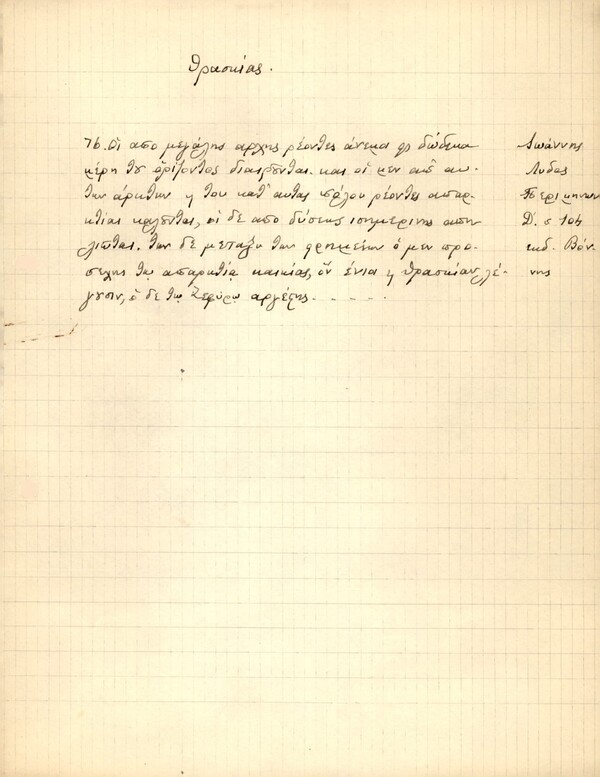 Θρασκίας.
76. Οἱ απο μεγάλης αρχης ρέοντες άνεμοι εἰς δώδεκα
μέρη του ὁρίζοντος διαιρουνται. και οἱ μεν απ' αυ-
των άρκτων η του κατ' αυτας πόλου ρέοντες απαρ-
κτίας καλουνται, οἱ δε απο δύσεως ισημερινης απη-
λιωται. των δε μεταξυ των ειρημένων ὁ μεν προ-
σεχης τω απαρκτία καικίας, ὃν ένιοι η θρασκίαν λέ-
γουσιν, ὁ δε τω Ζεφύρω αργέστης. - - - -
Ιωάννης
Λυδος
Περι μηνων
Δ. σ 106
εκδ. Βόν-
νης